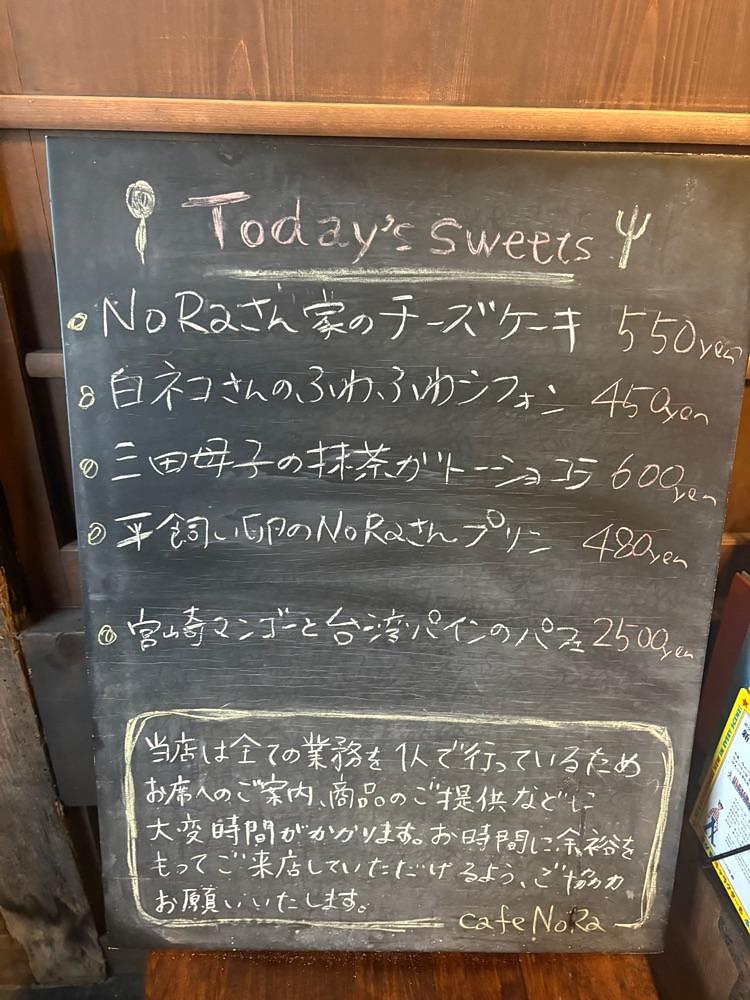 Today's sweets
NoRaさん家のチーズケーキ 550yen
白ネコさんのふわふわシフォン 450yen
三田母子の抹茶ガトーショコラ 600yen
平飼い卵のNoRaさんプリン 480yen
宮崎マンゴーと台湾パインのパフェ 2500yen
当店は全ての業務を1人で行っているため
お席へのご案内、商品のご提供などに
大変時間がかかります。お時間に余裕を
もってご来店していただけるよう、ご協力
お願いいたします。
cafe NoRa